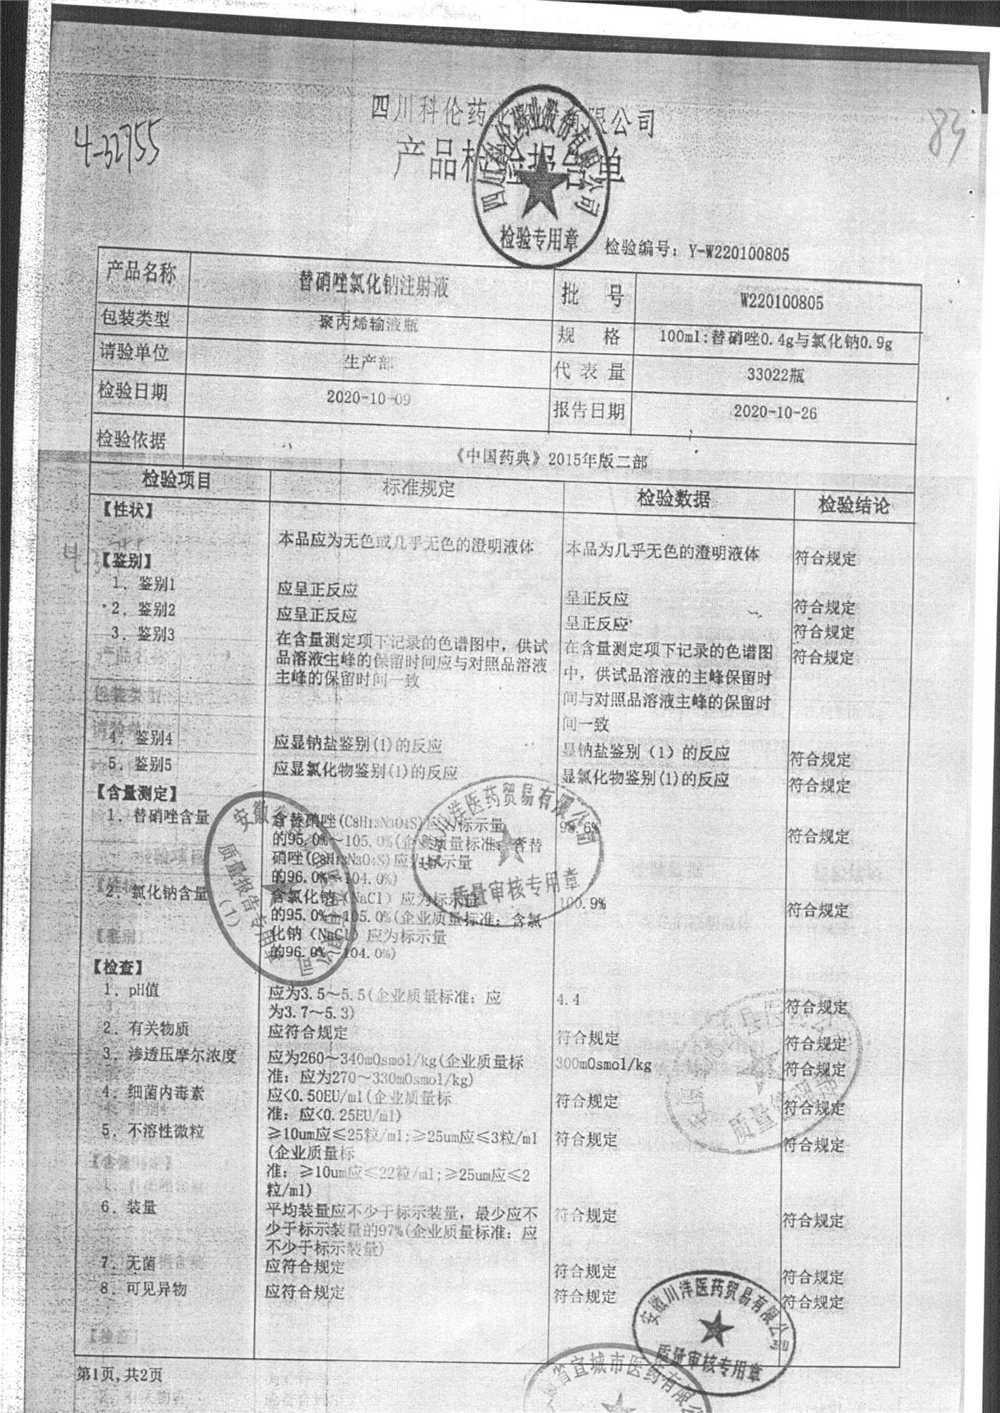 四川科伦药业股份有限公司
产品检验报告单
4-32755
83
四川科伦药业股份有限公司
检验专用章
检验编号：Y-W220100805
产品名称 替硝唑氯化钠注射液 批 号 W220100805
包装类型 聚丙烯输液瓶 规 格 100ml:替硝唑0.4g与氯化钠0.9g
请验单位 生产部 代表量 33022瓶
检验日期 2020-10-09 报告日期 2020-10-26
检验依据 《中国药典》2015年版二部
检验项目 标准规定 检验数据 检验结论
【性状】
本品应为无色或几乎无色的澄明液体 本品为几乎无色的澄明液体 符合规定
【鉴别】
1．鉴别1 应呈正反应 呈正反应 符合规定
2．鉴别2 应呈正反应 呈正反应 符合规定
3．鉴别3 在含量测定项下记录的色谱图中，供试 在含量测定项下记录的色谱图 符合规定
品溶液主峰的保留时间应与对照品溶液 中，供试品溶液的主峰保留时
主峰的保留时间一致 间与对照品溶液主峰的保留时
间一致
4．鉴别4 应显钠盐鉴别(1)的反应 显钠盐鉴别（1）的反应 符合规定
5．鉴别5 应显氯化物鉴别(1)的反应 显氯化物鉴别(1)的反应 符合规定
【含量测定】
1．替硝唑含量 含替硝唑(C8H13N3O4S)应为标示量 99.6% 符合规定
的95.0%～105.0%(企业质量标准：含替
硝唑(C8H13N3O4S)应为标示量
的96.0%～104.0%)
2．氯化钠含量 含氯化钠（NaCl）应为标示量 100.9% 符合规定
的95.0%～105.0%(企业质量标准：含氯
化钠（NaCl）应为标示量
的96.0%～104.0%)
【检查】
1．pH值 应为3.5～5.5(企业质量标准：应 4.4 符合规定
为3.7～5.3)
2．有关物质 应符合规定 符合规定 符合规定
3．渗透压摩尔浓度 应为260～340mOsmol/kg(企业质量标 300mOsmol/kg 符合规定
准：应为270～330mOsmol/kg)
4．细菌内毒素 应<0.50EU/ml(企业质量标 符合规定 符合规定
准：应<0.25EU/ml)
5．不溶性微粒 ≥10um应≤25粒/ml;≥25um应≤3粒/ml 符合规定 符合规定
(企业质量标
准：≥10um应≤22粒/ml;≥25um应≤2
粒/ml)
6．装量 平均装量应不少于标示装量，最少应不 符合规定 符合规定
少于标示装量的97%(企业质量标准：应
不少于标示装量)
7．无菌 应符合规定 符合规定 符合规定
8．可见异物 应符合规定 符合规定 符合规定
质量报告专用
（1）
川洋医药贸易有限公司
质量审核专用章
安徽川洋医药贸易有限公司
质量审核专用章
省宜城市医药有
第1页,共2页